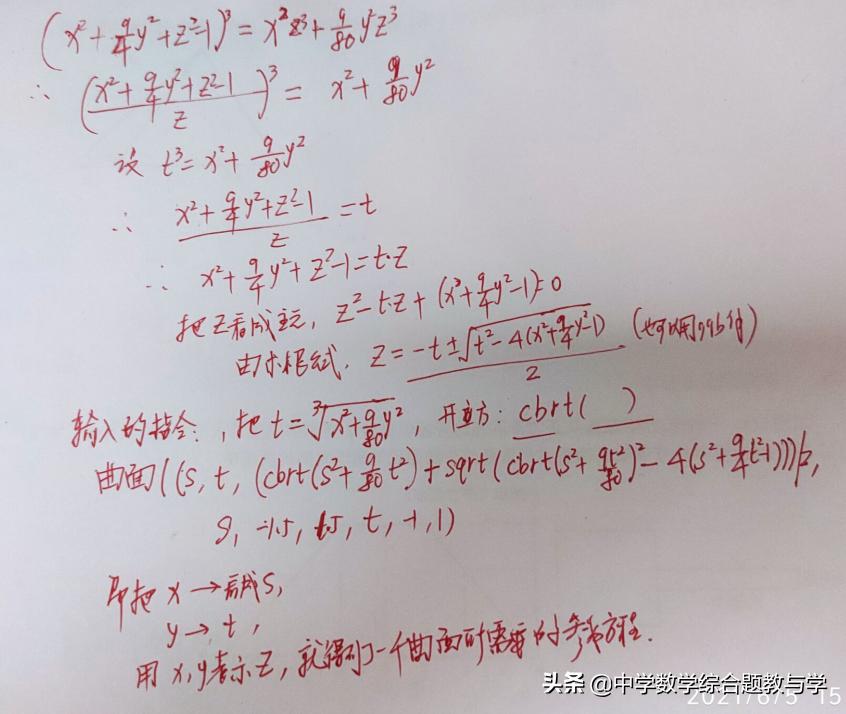 (x²+9/4y²+z²-1)³=x²z³+9/80y²z³
∴ ((x²+9/4y²+z²-1)/z)³= x²+9/80y²
设 t³=x²+9/80y²
∴ (x²+9/4y²+z²-1)/z=t
∴ x²+9/4y²+z²-1=t·z
把z看成主元, z²-t·z+(x²+9/4y²-1)=0
由求根式. z=(-t±√(t²-4(x²+9/4y²-1)))/2 (也可以用ggb付)
输入的指令:, 把t=³√(x²+9/80y²), 开立方: cbrt( )
曲面((s, t, (cbrt(s²+9/80t²)+sqrt(cbrt(s²+9t²/80)²-4(s²+9/4t²-1)))/2,
s, -1.5, 1.5, t, -1, 1)
即把 x→看成s,
y→t,
用x,y表示z, 就得到了一个曲面时需要的参数方程.
头条 @中学数学综合题教与学
2021/6/5 15